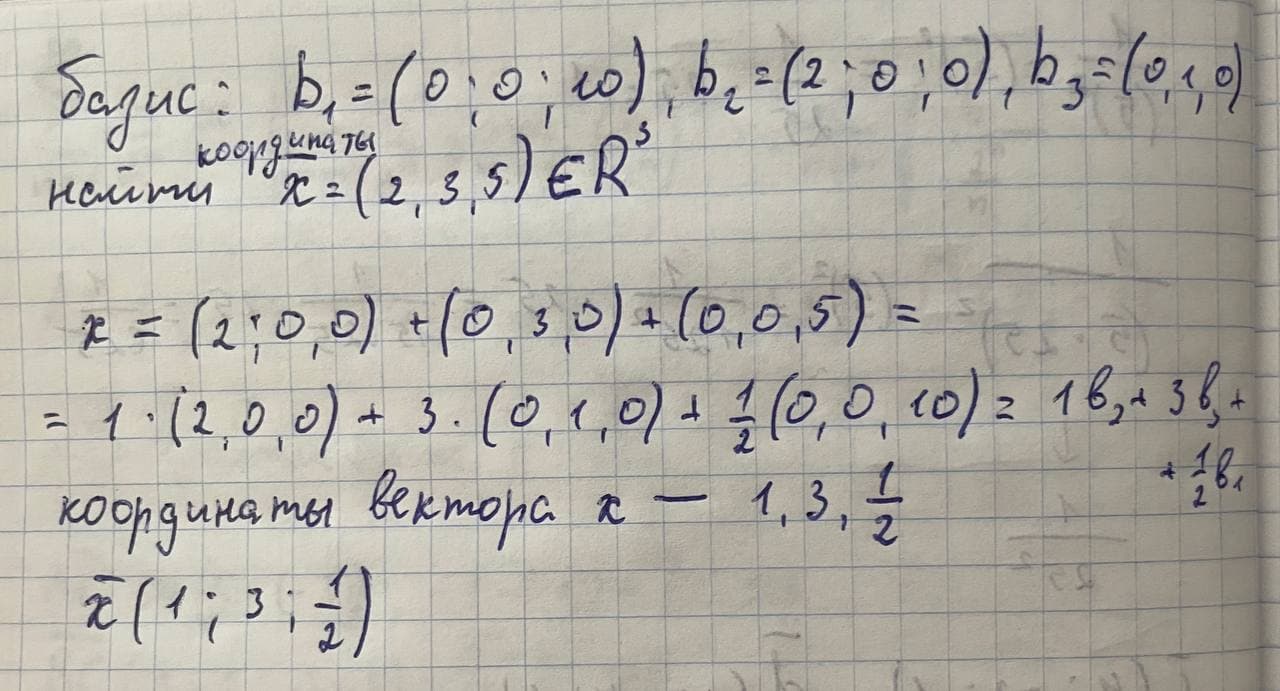 базис: b₁ = (0 ; 0 ; 10), b₂ = (2 ; 0 ; 0), b₃ = (0, 1, 0)
координаты
найти x̄ = (2, 3, 5) ∈ R³
x = (2 ; 0, 0) + (0, 3, 0) + (0, 0, 5) =
= 1 · (2, 0, 0) + 3 · (0, 1, 0) + 1/2 (0, 0, 10) = 1b₂ + 3b₃ +
+ 1/2 b₁
координаты вектора x — 1, 3, 1/2
x̄ (1 ; 3 ; 1/2)